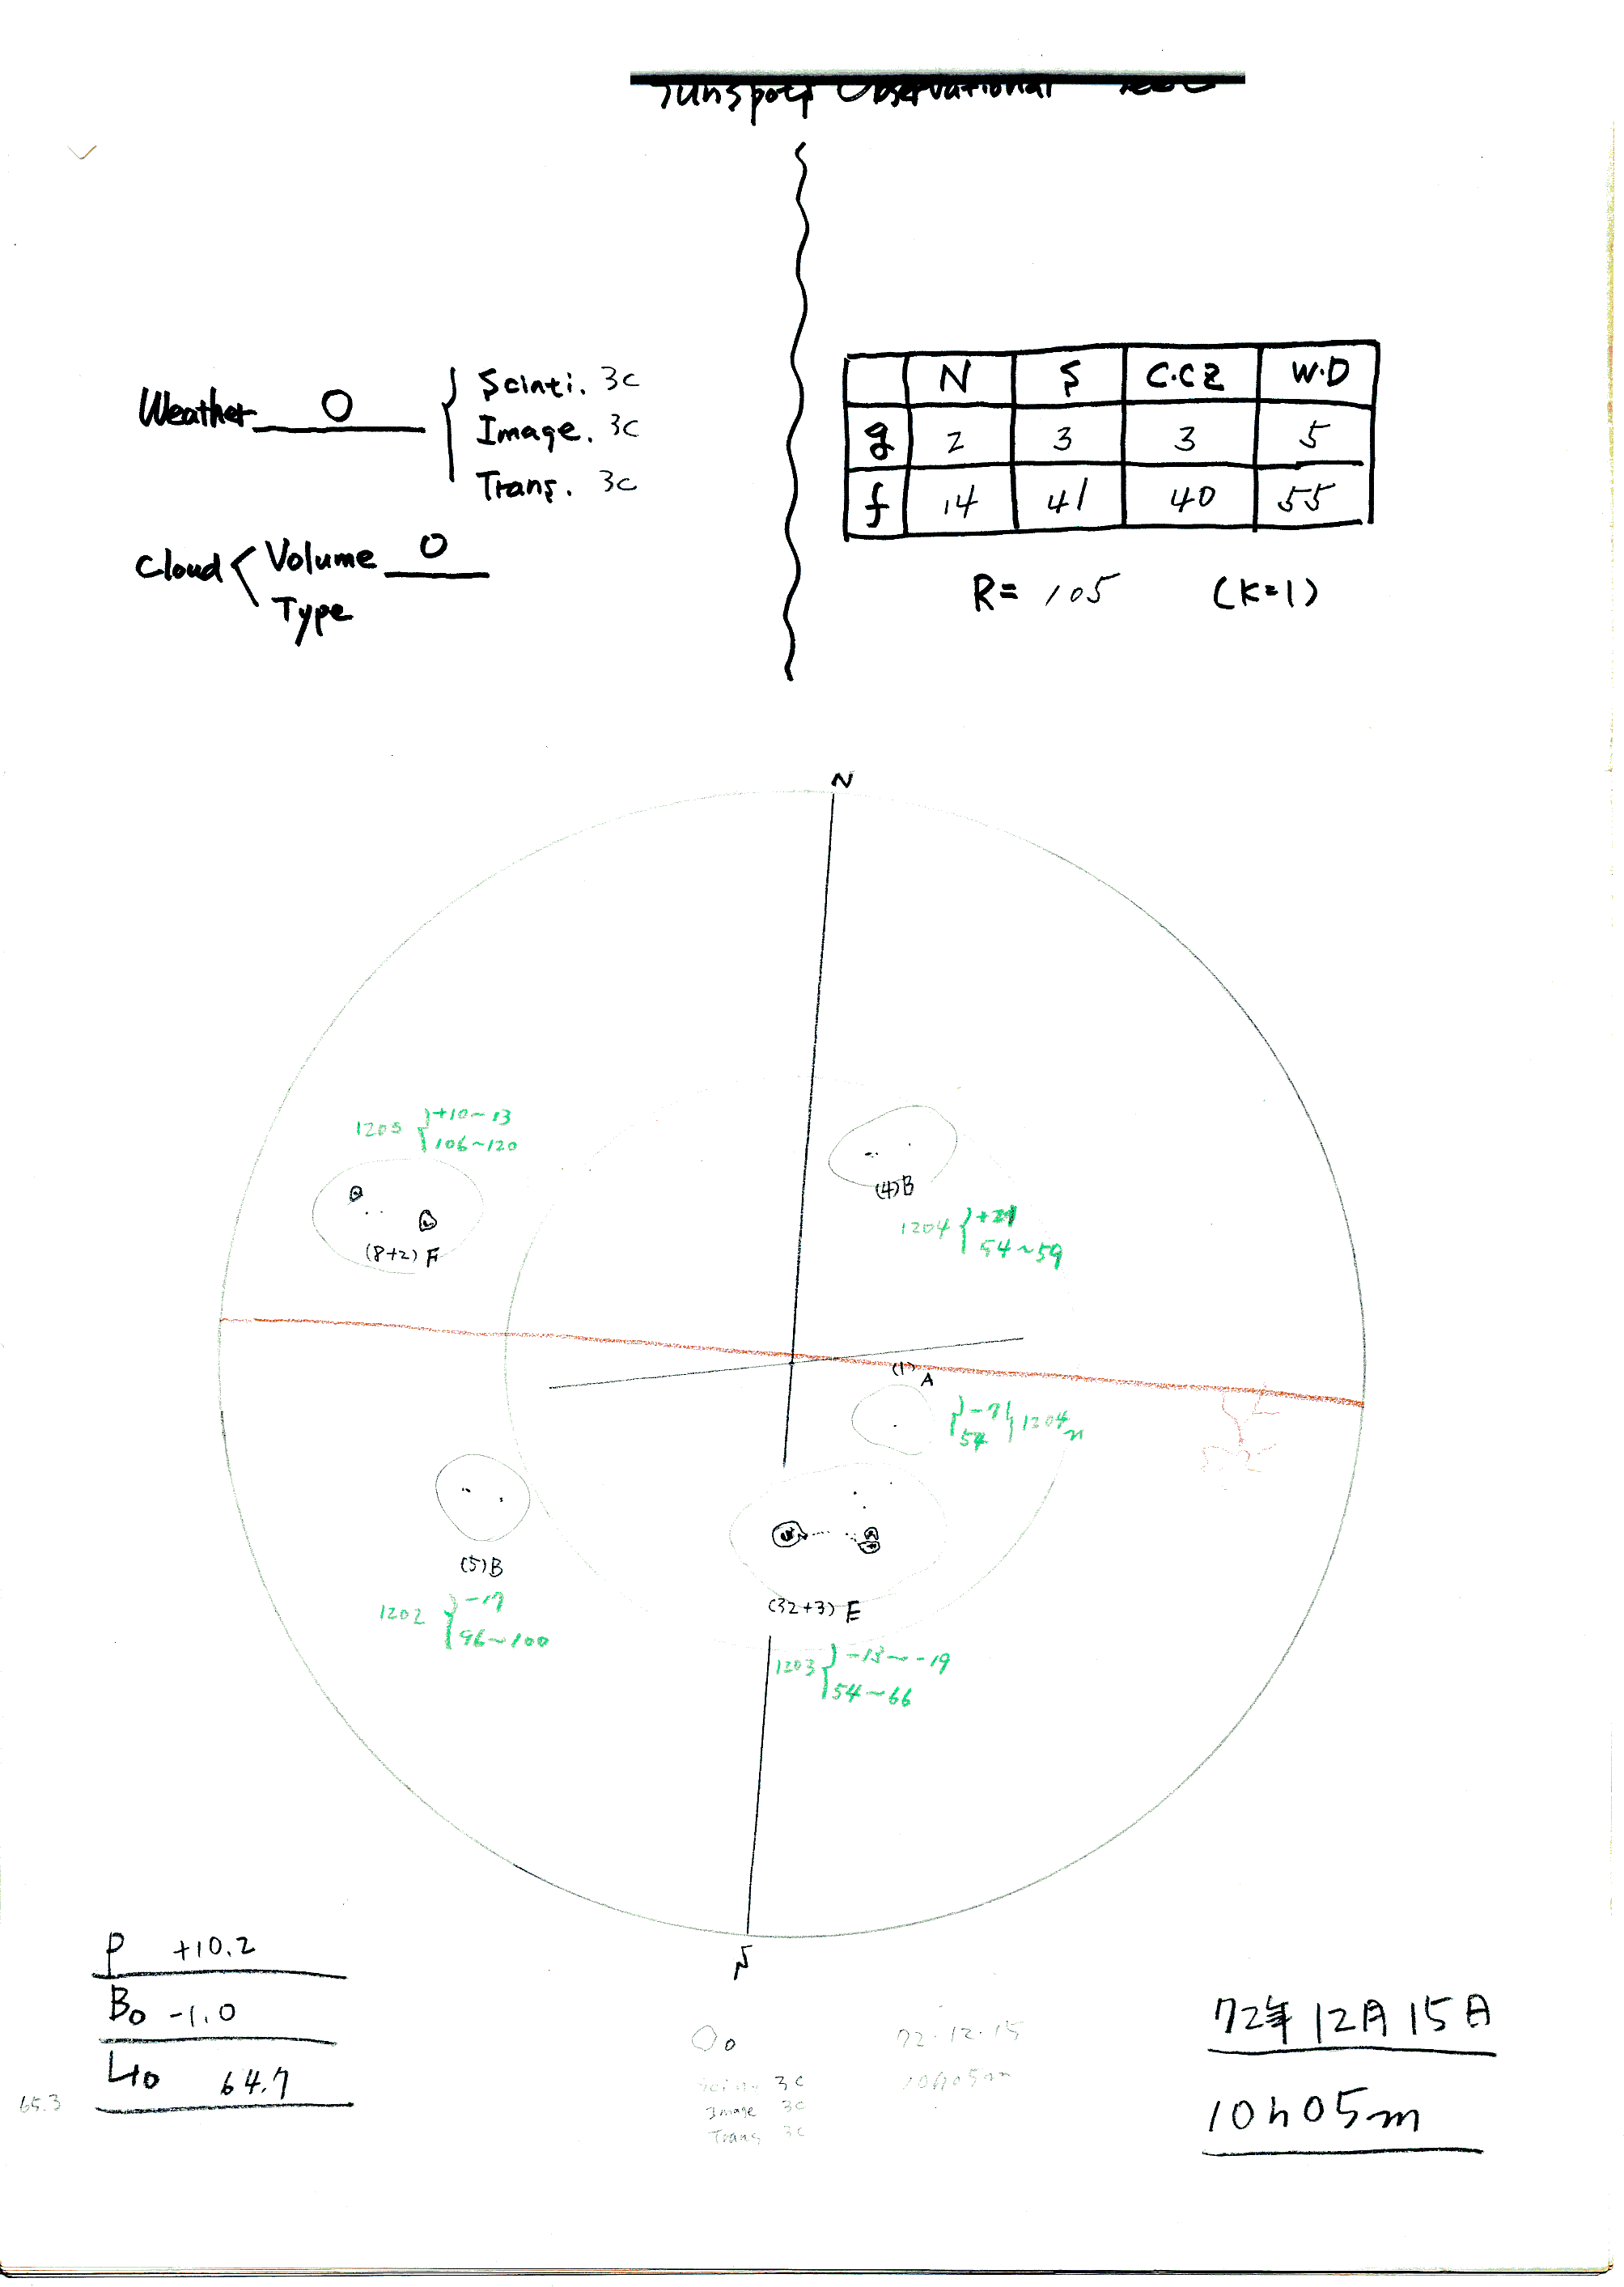 Sunspots Observational
Weather O
Scinti. 3c
Image. 3c
Trans. 3c
Cloud Volume 0
Type
N S C.C.Z W.D
g 2 3 3 5
f 14 41 40 55
R= 105 (K=1)
N
1205 +10~13
106~120
(8+2) F
(4)B
1204 +21
54~59
(1) A
-7 1204n
54
(5)B
1202 -17
96~100
(32+3) E
1203 -13~-19
54~66
S
P +10.2
B0 -1.0
L0 64.7
65.3
72.12.15
Scin. 3c
10h05m
Image 3c
Trans 3c
72年12月15日
10h05m